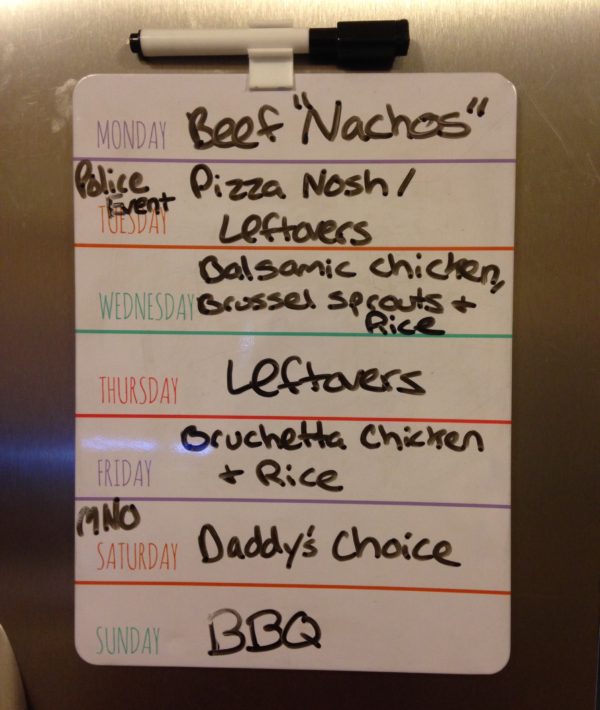 MONDAY Beef "Nachos"
Police Pizza Nosh /
Event
TUESDAY Leftovers
Balsamic chicken,
WEDNESDAY Brussel sprouts +
Rice
THURSDAY Leftovers
Bruchetta Chicken
FRIDAY + Rice
MNO
SATURDAY Daddy's Choice
SUNDAY BBQ